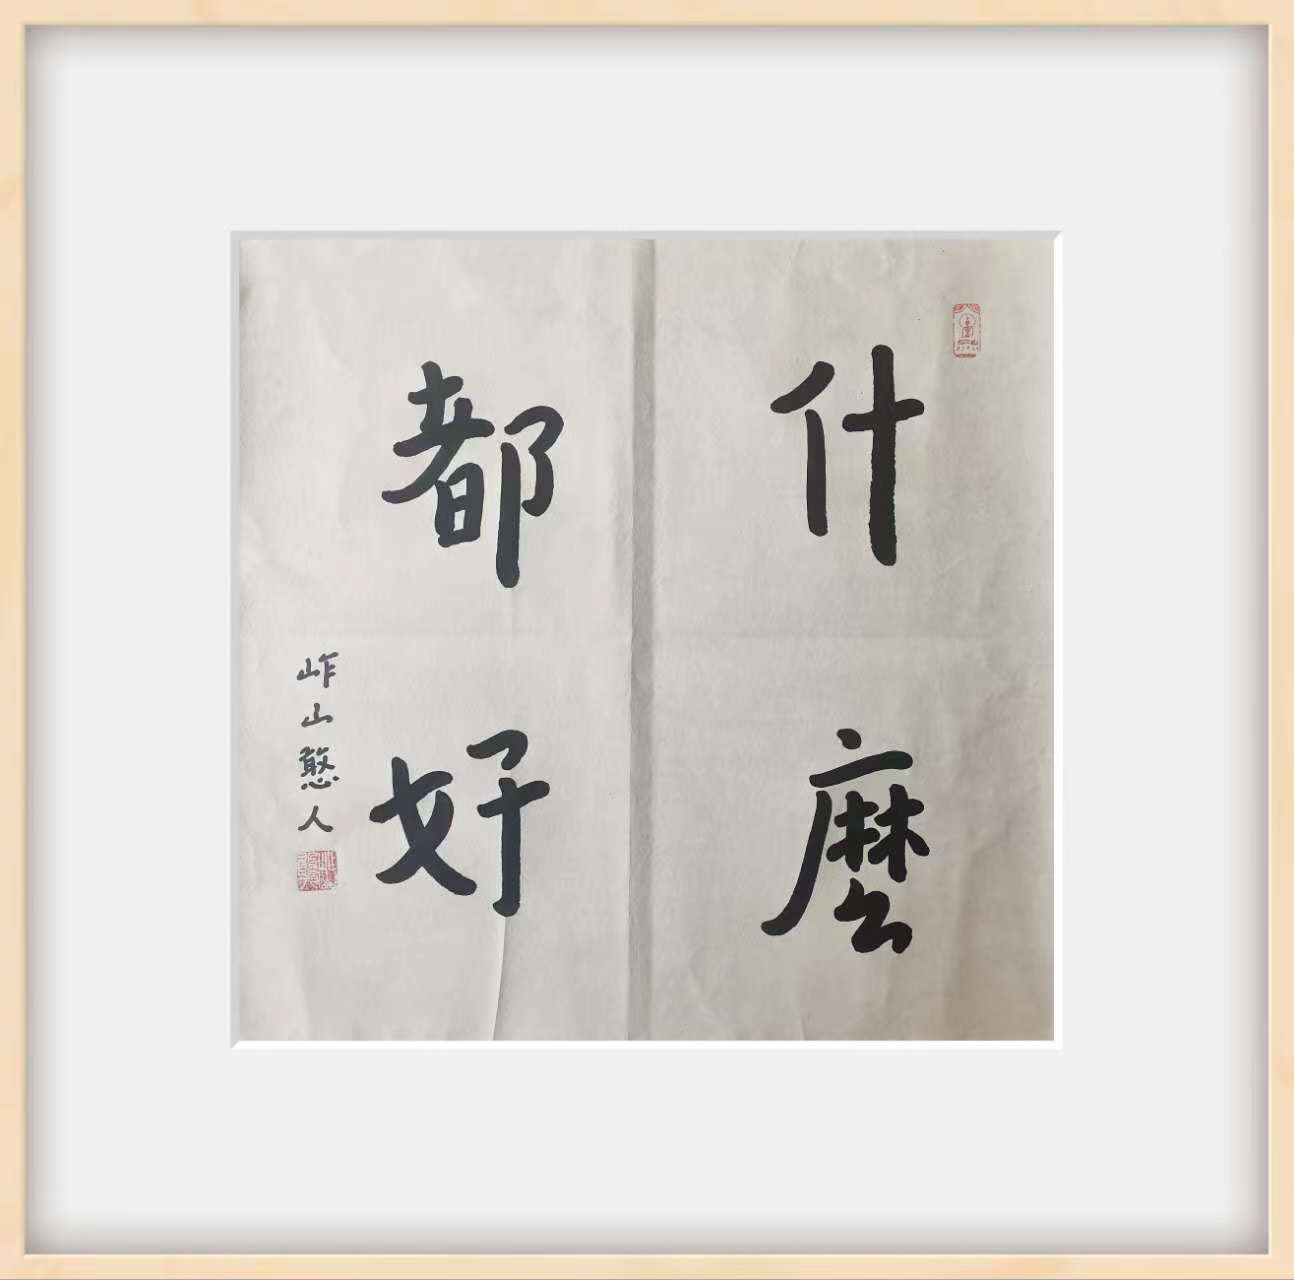 什麼
都好
岞山憨人